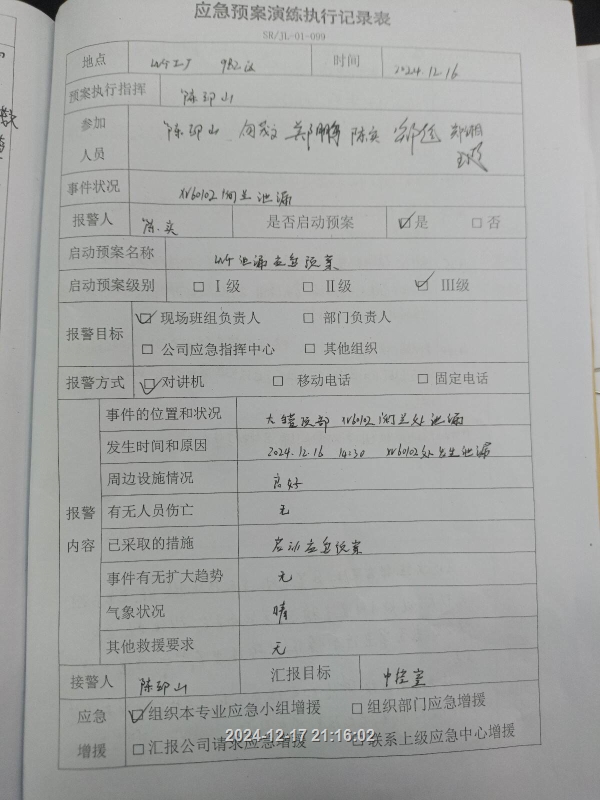 应急预案演练执行记录表
SR/JL-01-099
地点 时间 2024.12.16
预案执行指挥 陈卯山
参加人员 陈卯山 陈实
事件状况 XV60102阀兰泄漏
报警人 陈实 是否启动预案 ☑是 □否
启动预案名称 泄漏应急预案
启动预案级别 □Ⅰ级 □Ⅱ级 ☑Ⅲ级
报警目标 ☑现场班组负责人 □部门负责人
□公司应急指挥中心 □其他组织
报警方式 ☑对讲机 □移动电话 □固定电话
报警内容
事件的位置和状况 大罐顶部 XV60102阀兰处泄漏
发生时间和原因 2024.12.16 14:30 XV60102处发生泄漏
周边设施情况 良好
有无人员伤亡 无
已采取的措施 启动应急预案
事件有无扩大趋势 无
气象状况 晴
其他救援要求 无
接警人 陈卯山 汇报目标 中控室
应急增援 ☑组织本专业应急小组增援 □组织部门应急增援
□汇报公司请求应急增援 □联系上级应急中心增援
2024-12-17 21:16:02